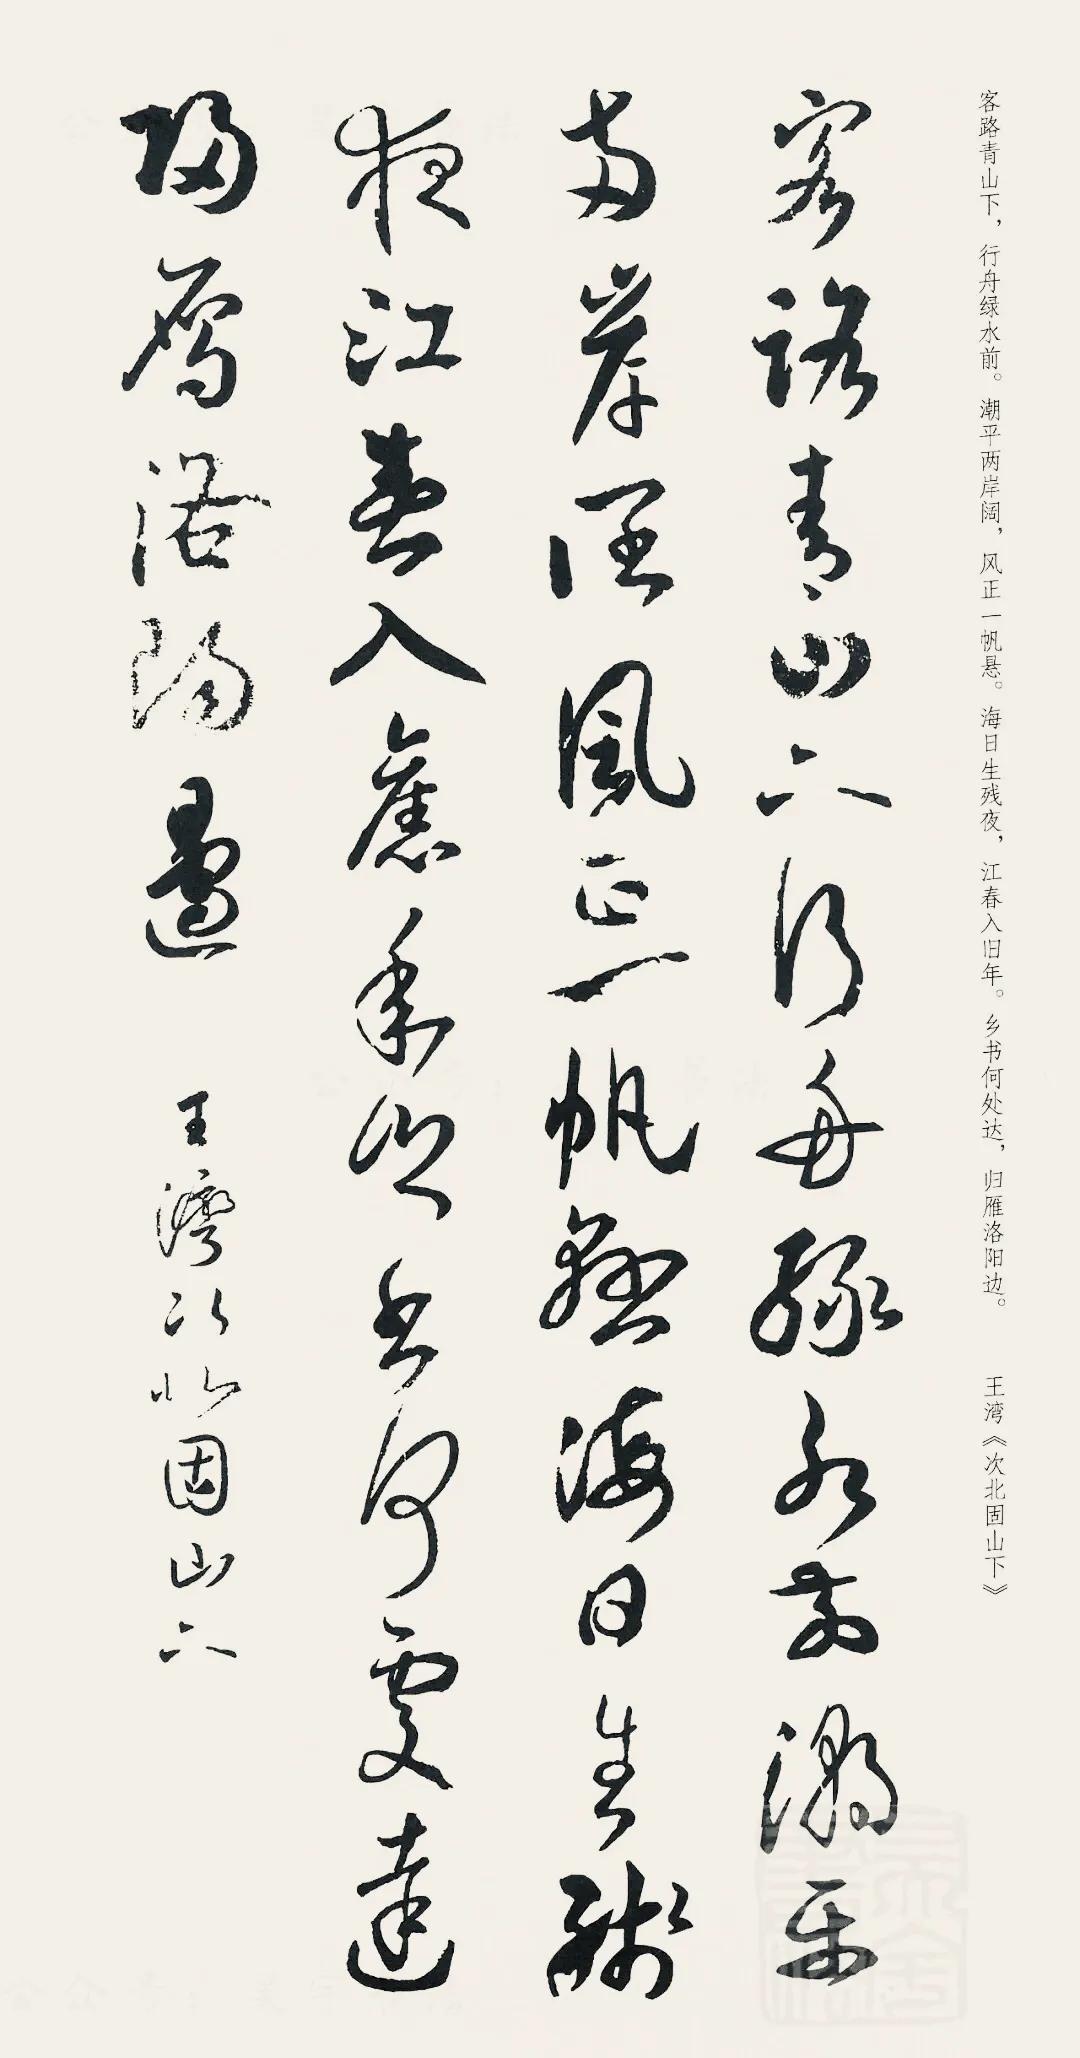 客路青山下，行舟绿水前。潮平两岸阔，风正一帆悬。海日生残夜，江春入旧年。乡书何处达，归雁洛阳边。 王湾《次北固山下》
客路青山下行舟綠水前潮平
兩岸闊風正一帆懸海日生殘
夜江春入舊年鄉書何處達
歸雁洛陽邊 王灣次北固山下